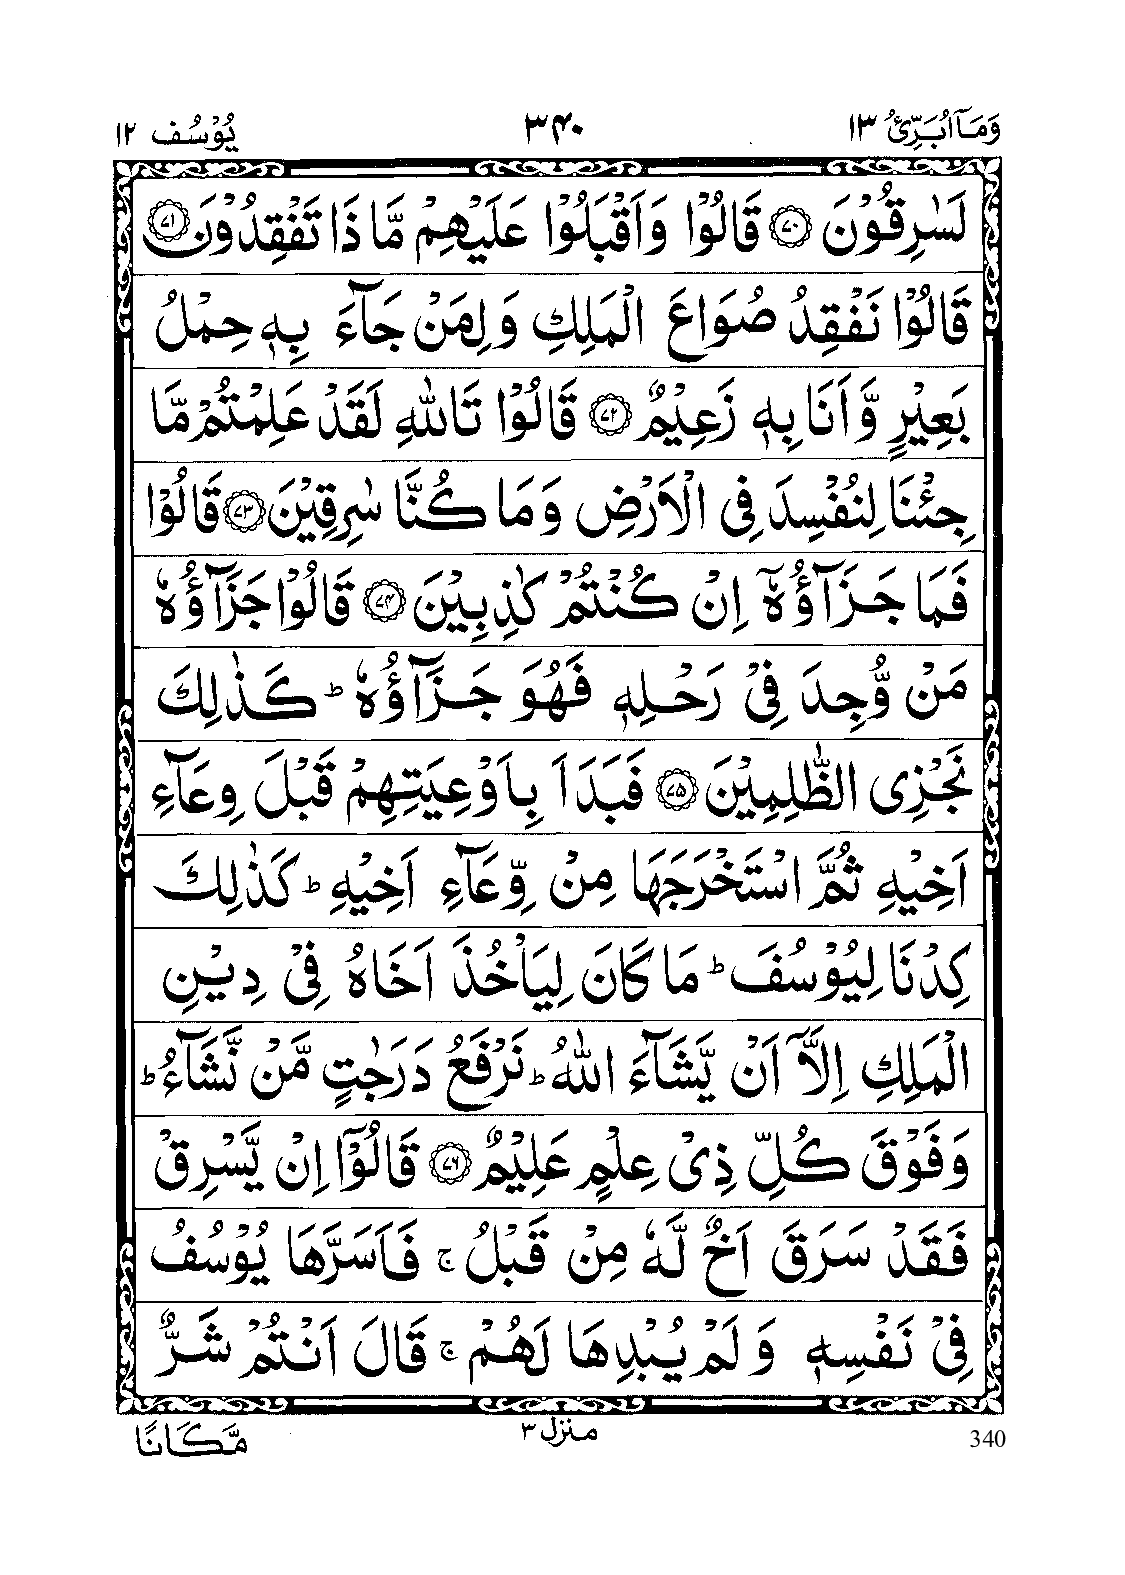 وَمَآ اُبَرِّئُ ١٣ ٣۴٠ يُوْسُف ١٢
لَسٰرِقُوْنَ ﴿۷۰﴾ قَالُوْا وَاَقْبَلُوْا عَلَيْهِمْ مَّا ذَا تَفْقِدُوْنَ ﴿۷۱﴾
قَالُوْا نَفْقِدُ صُوَاعَ الْمَلِكِ وَلِمَنْ جَآءَ بِهٖ حِمْلُ
بَعِيْرٍ وَّاَنَا بِهٖ زَعِيْمٌ ﴿۷۲﴾ قَالُوْا تَاللّٰهِ لَقَدْ عَلِمْتُمْ مَّا
جِئْنَا لِنُفْسِدَ فِى الْاَرْضِ وَمَا كُنَّا سٰرِقِيْنَ ﴿۷۳﴾ قَالُوْا
فَمَا جَزَآؤُهٗۤ اِنْ كُنْتُمْ كٰذِبِيْنَ ﴿۷۴﴾ قَالُوْا جَزَآؤُهٗ
مَنْ وُّجِدَ فِىْ رَحْلِهٖ فَهُوَ جَزَآؤُهٗ ؕ كَذٰلِكَ
نَجْزِى الظّٰلِمِيْنَ ﴿۷۵﴾ فَبَدَاَ بِاَوْعِيَتِهِمْ قَبْلَ وِعَآءِ
اَخِيْهِ ثُمَّ اسْتَخْرَجَهَا مِنْ وِّعَآءِ اَخِيْهِ ؕ كَذٰلِكَ
كِدْنَا لِيُوْسُفَ ؕ مَا كَانَ لِيَاْخُذَ اَخَاهُ فِىْ دِيْنِ
الْمَلِكِ اِلَّاۤ اَنْ يَّشَآءَ اللّٰهُ ؕ نَرْفَعُ دَرَجٰتٍ مَّنْ نَّشَآءُ ؕ
وَفَوْقَ كُلِّ ذِىْ عِلْمٍ عَلِيْمٌ ﴿۷۶﴾ قَالُوْۤا اِنْ يَّسْرِقْ
فَقَدْ سَرَقَ اَخٌ لَّهٗ مِنْ قَبْلُ ۚ فَاَسَرَّهَا يُوْسُفُ
فِىْ نَفْسِهٖ وَلَمْ يُبْدِهَا لَهُمْ ۚ قَالَ اَنْتُمْ شَرٌّ
مَّكَانًا
منزل ٣
340